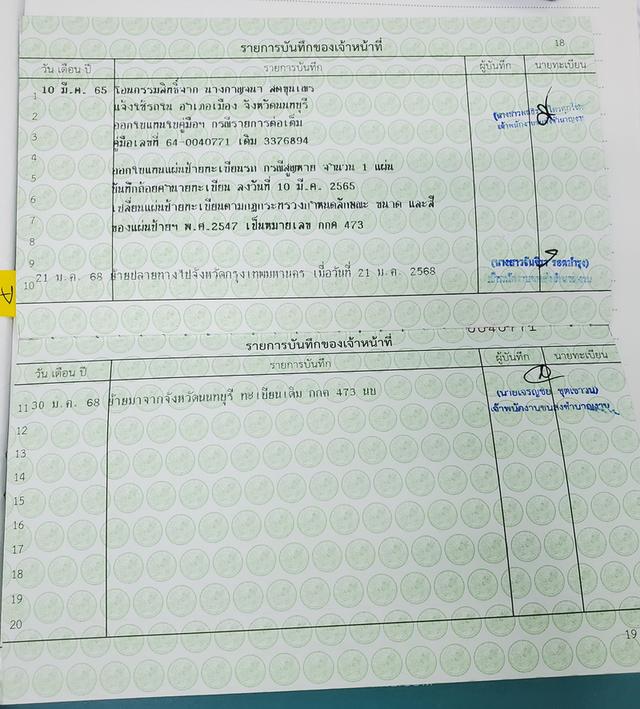 รายการบันทึกของเจ้าหน้าที่
18
วัน เดือน ปี รายการบันทึก ผู้บันทึก นายทะเบียน
1 10 มี.ค. 65 โอนกรรมสิทธิ์จาก นางกาญจนา
2 แจ้งใช้รถใน อำเภอเมือง จังหวัดนนทบุรี
ออกใบแทนใบคู่มือฯ กรณีรายการต่อเต็ม
3 คู่มือเลขที่ 64-0040771 เดิม 3376894
4
5 ออกใบแทนแผ่นป้ายทะเบียนรถ กรณีสูญหาย จำนวน 1 แผ่น
บันทึกถ้อยคำนายทะเบียน ลงวันที่ 10 มี.ค. 2565
6 เปลี่ยนแผ่นป้ายทะเบียนตามกฎกระทรวงกำหนดลักษณะ ขนาด และสี
7 ของแผ่นป้ายฯ พ.ศ.2547 เป็นหมายเลข กกค 473
8
9
10 21 ม.ค. 68 ย้ายปลายทางไปจังหวัดกรุงเทพมหานคร เมื่อวันที่ 21 ม.ค. 2568
A
0040771
รายการบันทึกของเจ้าหน้าที่
วัน เดือน ปี รายการบันทึก ผู้บันทึก นายทะเบียน
11 30 ม.ค. 68 ย้ายมาจากจังหวัดนนทบุรี ทะเบียนเดิม กกค 473 นบ
เจ้าพนักงานขนส่งชำนาญงาน
12
13
14
15
16
17
18
19
20
19